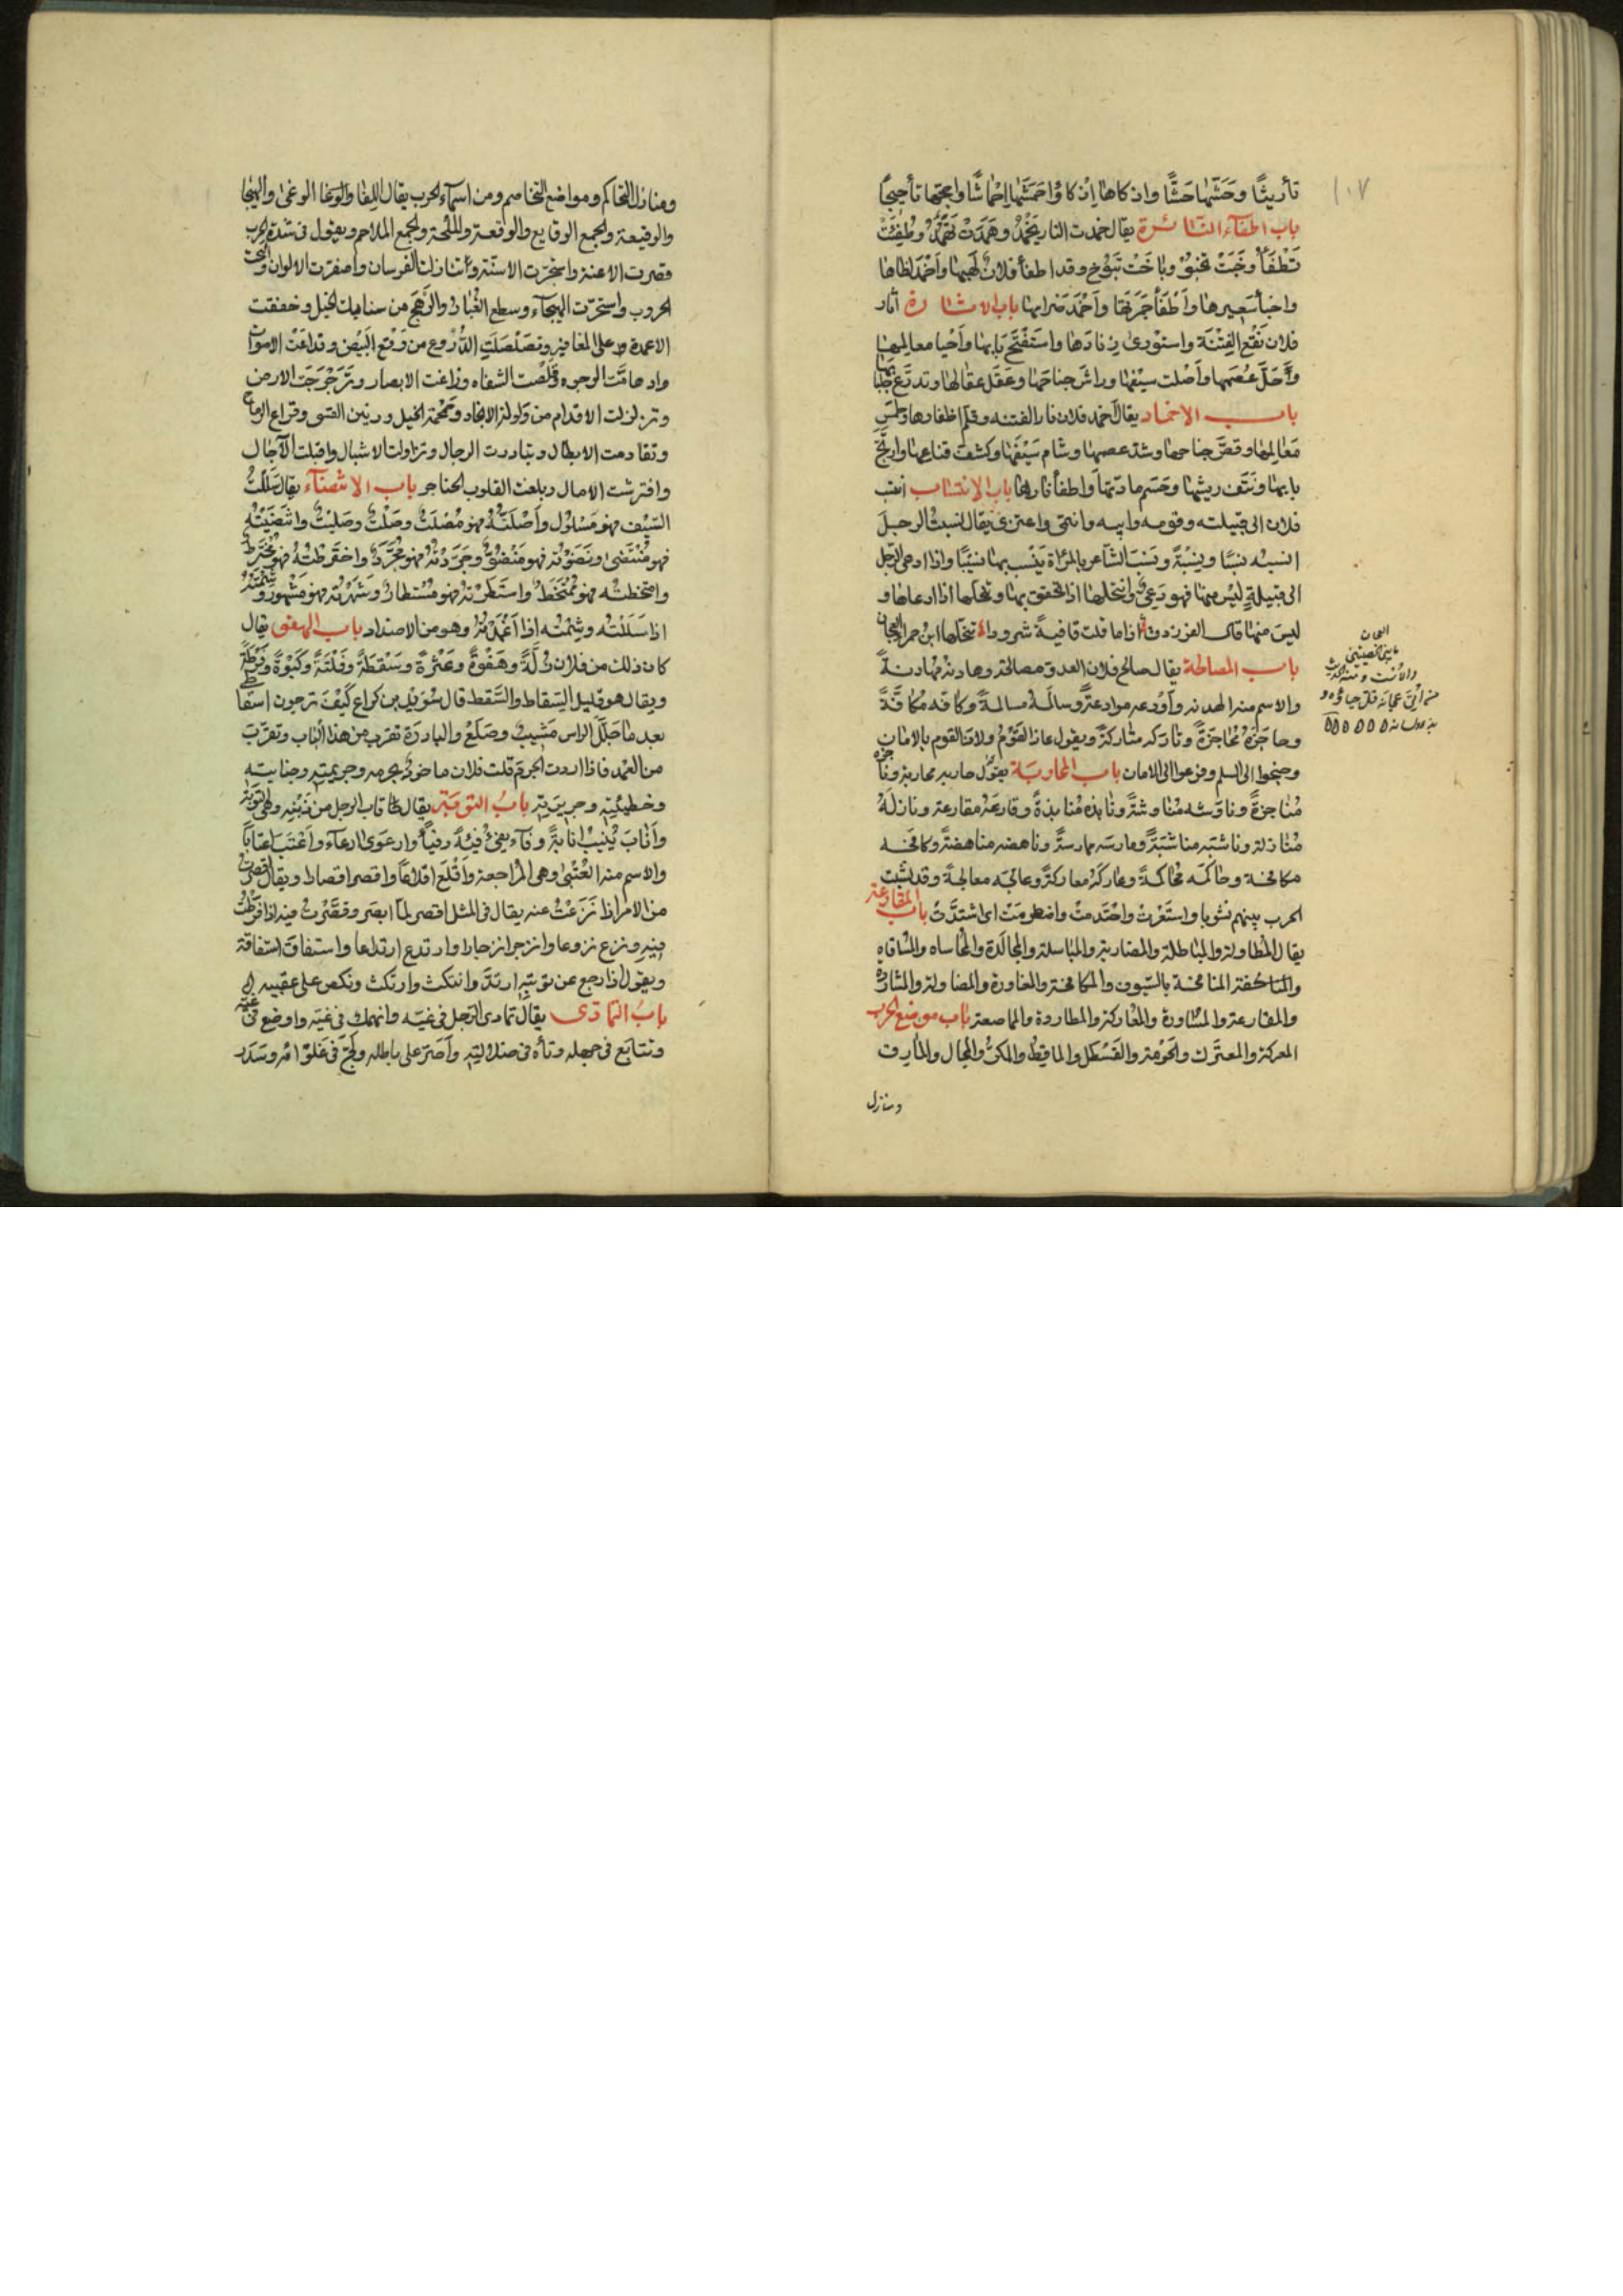 ١٠٧
تأريثًا وحَشّها حَشًّا واذكاها اِذكاءً واحمَشَها اِحماشًا واججها تأجيجًا
باب اطفاء النائرة يقال خمدت النار تَخْمُدُ وهَمَدَتْ تَهْمُدُ وطُفِئَتْ
تَطْفَأُ وخَبَتْ تخبو وباخَتْ تَبُوخ وقد اطفأ فلان لَهيبها واَخْمَدَ لظاها
واخبأ سَعيرها واَطْفَأ جَمرَتها واَخْمَدَ ضرامها باب الاشارة آثار
فلان نَقْعَ الفِتْنَة واستورى زنادَها واستَفْتَحَ بابها واَحْيا معالمها
وأَحَلّ عُصَمها واَصْلت سيْفها وراشَ جناحَها وعَقَل عقالها وتدرّع جلبابها
باب الاخماد يقال اخمد فلان نار الفتنه وقلم اظفارها وطمس
مَعَالمها وقصَّ جناحها وشدّ عصمها وشام سَيْفَها وكشف قناعها وارتج
بابها ونَتَف ريشها وحَسَم مادتها واطفأ نارها باب الانتساب انتسب
فلان الى قبيلته وقومه وابيه وانتمى واعتزى يقال نسبت الرجل
انسبه نسَبًا ونِسْبَةً ونَسَبَ الشاعر بالمرْأة يَنْسب بها نسيبًا واذا ادعى الرجل
الى قبيلةٍ ليْس منها فهو دَعِيٌّ وانتحلها اذا تحقق بها وتنحلها اذا ادعاها و
ليسَ منها قال الفرزدق اذا ما قلت قافيةً شرودًا تنحّلها ابن حمراء العجان
باب المصالحة يقال صالح فلان العدو مصالحة وهادنه مهادنةً
والاسم منه الهدنه وأَوْدعه موادعةً وسالَمهُ مسالمةً وكافه مُكافّةً
وحاجَزَهُ مُحاجَزَةً وتارَكه متاركةً ويقول عاذ القَوْمُ ولاذ القوم بالامان
وجنحوا الى السلم وفزعوا الى الامان باب المحاربَة يقول حاربه محاربة وناجزه
مُناجزةً وناوَشه مُناوشةً ونابذه مُنابذةً وقارعَهُ مقارعة ونازلَهُ
مُنازلة وناشبَه مناشبَةً ومارسَه ممارسةً وناهضه مناهضةً وكافحَه
مكافحة وحاكَمه مُحاكمةً وعارَكَهُ معاركةً وعالجَه معالجةً وقد نشبت
الحرب بينهم نشوبا واستَعَرتْ واحْتَدمتْ واضطرمَتْ اى اشتدَّتْ باب المقارعة
يقال المُطاولة والمُباطلة والمضاربة والمباسلة والمجالَدة والمُحاساه والمُساقاه
والمناكفة المنافحة بالسّيوف والمكافحة والمغاورة والمصاولة والمشازرة
والمقارعة والمُساورة والمُعاركة والمطاردة والمماصعة باب موضع الحرب
المعركة والمعتَرك والحَوْمة والقَسْطل والمأقِط والمكرُّ والمجال والمأزق
ومنازل
العجان
ما بين الخصيتين
والاست ومنه الحديث
ومنازل التحاكم ومواضع التخاصم ومن اسماء الحرب يقال اللقا والوغا الوغى والهيجا
والوقيعة والجمع الوقايع والوقعة والملحمة والجمع الملاحم ويقول فى شدة الحرب
قصرت الاعنة واشتجرت الاسنّة وتنازلت الفرسان واصفرت الالوان
الحروب واستحرّت الهيجآء وسطع الغُبار والرَّهَجَ من سنابك الخيل وخفقت
الاعمدة على المغافر وتصَلْصَلَتِ الدُّرُوع من وَقع البيْض وتداعَت الاصوات
وادهامَّت الوجوه وقلصَت الشفاه وزاغت الابصار وتَرَجْرَجَت الارض
وتزلزلت الاقدام من وَلولة الانجاد وحَمْحمة الخيل ورنين القسى وقراع الرماح
وتقادمت الابطال وتبادرت الرجال وتزاولت الاشبال واقبلت الآجال
وافترشت الامال وبلغت القلوب الحناجر باب الانتضآء يقال سَلَلْتُ
السَّيْف فهو مَسْلول وأَصْلَتُّهُ فهو مُصْلَتٌ وصَلْتٌ وصَليْتٌ وانتَضَيْتُه
فهو مُنْتَضى ونَضَوْته فهو مَنْضُوٌّ وجَرّدْتهُ فهو مُجَرَّدٌ واخترَطتُهُ فهو مُخترَط
وامتخطتُه فهو مُمْتَخَطٌ واستَطَرْته فهو مُسْتطارٌ وشَهَرْته فهو مَشهورٌ وشِمْتَهُ
اذا سَلَلْتُه وشِمْتُه اذا اَغْمَدْتَهُ وهو من الاضداد باب الهفو يقال
كان ذلك من فلان زلَّةً وهَفْوةً وعَثْرةً وسَقطَةً وفَلْتَةً وكَبْوةً وفَرْطَةً
ويقال هو قليل السِقاط والسَّقط قال سُوَيْد بن كراع كَيْفَ ترجون اسقاطى
بعد ما جَلّل الراس مَشيبٌ وصَلَعْ والبادرَة تقرب من هذا الباب وتقرّب
من العَمْد فاذا اردت الجرمَ قلت فلان ماخوذ بجرمه وجريمته وجنايته
وخطيئته وجريرته بابُ التوبَة يقال تاب الرجل من ذَنْبِهِ وهى التوبة
واَنابَ يُنيبُ انابةً وفآء يفئ فيئةً وفيئًا وارعَوى ارعآء واَعْتَبَ اعتابًا
والاسم منه العُتْبى وهى المُراجعة واَقْلَعَ اقلاعًا واقصر اقصارا ويقال اقصرت
من الامر اذا نزَعْتْ عنه يقال فى المثل اقصر لمّا ابصَر وقصَّرْت فيه اذا فرَّطْت
فيه ونزع نزوعا وانزجر انزجارا وارتدع ارتداعا واستفاقَ استفاقة
ويقول اذا رجع عن توبته ارتدَّ وانتكث وارتكث ونكص على عقبيه
بابُ التمادى يقال تمادى الرجل فى غيّه وانهمك فى غيّه واوضع فى غيّه
وتتايَع فى جهله وتاهَ فى ضلالته واَصَرَّ على باطله ولَجَّ فى غلوّائه وسَدَر